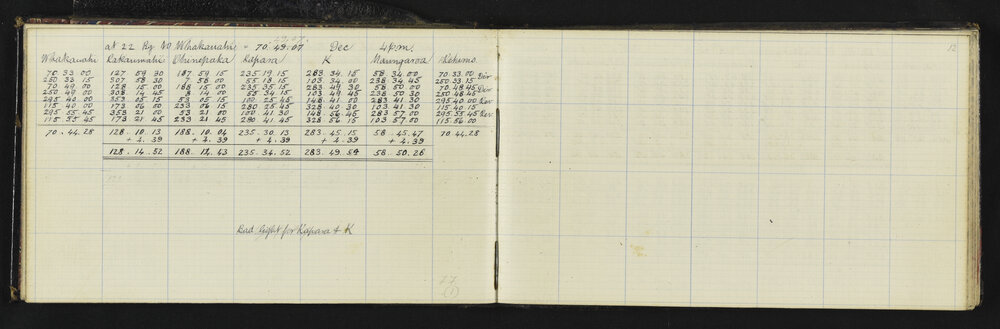 at 22 Rq to Whakauahi = 70.49.07 Dec 4 p.m.
Whakauahi Rakaunuahi Ohunepaka Kapara K Maungaroa
70 33 00 127 59 30 187 59 15 235 19 15 283 34 15 58 34 00 70 33 00 Dir
250 33 15 307 58 30 7 58 00 55 18 15 103 34 00 238 34 45 250 33 15
70 49 00 128 15 00 188 15 00 235 35 15 283 49 30 58 50 00 70 48 45 Dir
250 49 00 308 14 45 8 14 00 55 34 15 103 49 45 238 50 30 250 48 45
295 40 00 353 05 15 53 05 15 100 25 45 148 41 00 283 41 30 295 40 00 Rev
115 40 00 173 06 00 233 06 15 280 25 45 328 40 30 103 41 30 115 40 15
295 55 45 353 21 00 53 21 00 100 41 30 148 56 45 283 57 00 295 55 45 Rev
115 55 45 173 21 45 233 21 45 280 41 45 328 56 15 103 57 00 115 56 00
70..44.28 128..10.13 188..10.04 235..30.13 283..45.15 58..45.47 70.44.28
+ 4.39 + 4.39 + 4.39 + 4.39 + 4.39
128..14..52 188.14.43 235..34.52 283..49.54 58..50.26
Bad light for Kapara & K
27
(1)
12